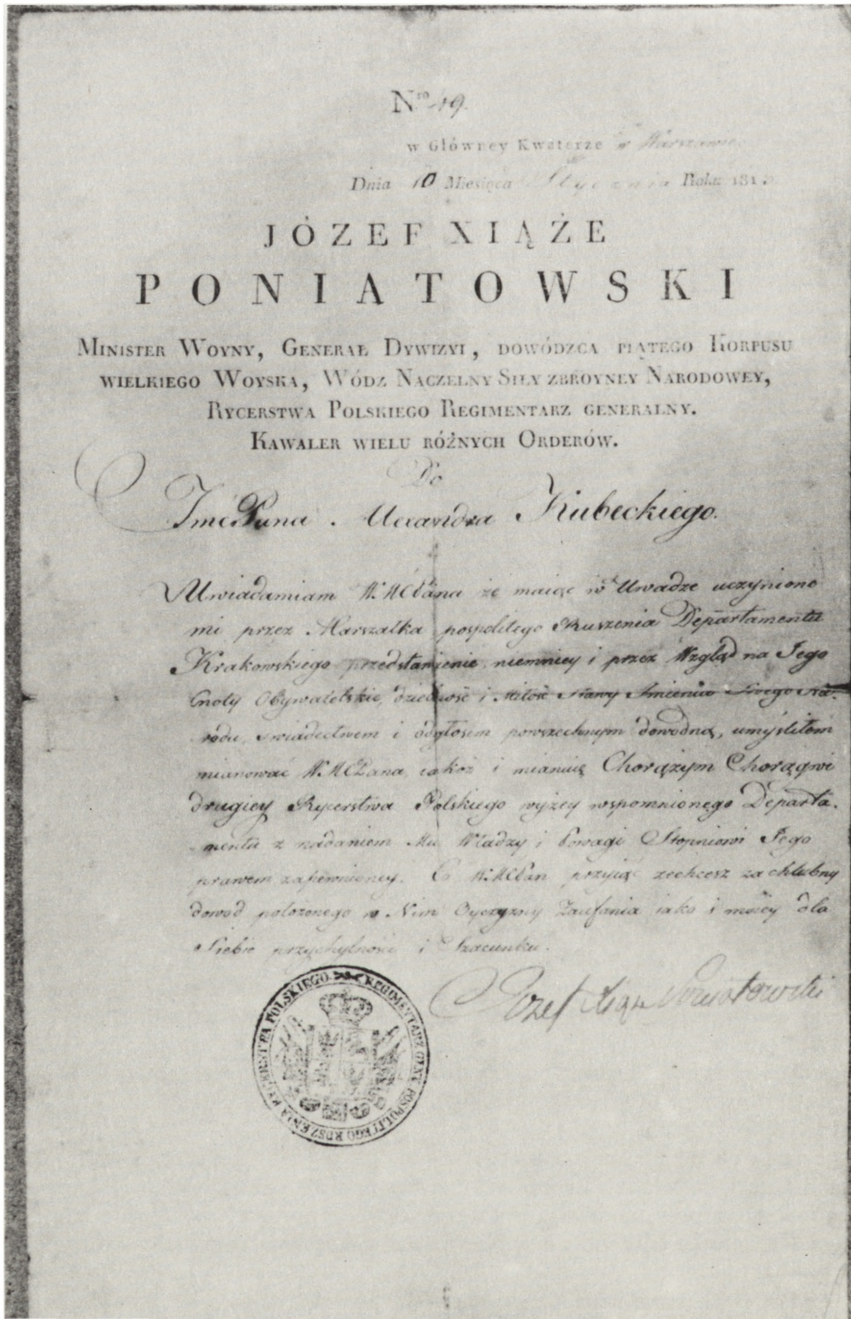 Nro 49.
w Główney Kwaterze w Warszawie
Dnia 10 Miesiąca Stycznia Roku 181
JÓZEF XIĄŻE
PONIATOWSKI
Minister Woyny, Generał Dywizyi, dowódzca piątego Korpusu
wielkiego Woyska, Wódz Naczelny Siły zbroyney Narodowey,
Rycerstwa Polskiego Regimentarz generalny.
Kawaler wielu różnych Orderów.
Do
Jmć Pana Alexandra Kubeckiego.
Uwiadamiam WMCPana że maiąc w Uwadze uczynione
mi przez Marszałka pospolitego Ruszenia Departamentu
Krakowskiego przedstawienie, niemniey i przez Wzgląd na Jego
Cnoty Obywatelskie, dzielność i miłość Sławy Imienia Swego Na-
rodu, świadectwem i odgłosem powszechnym dowodną, umyśliłem
mianować WMCPana iakoż i mianuię Chorążym Chorągwi
drugiey Rycerstwa Polskiego wyżey wspomnionego Departa-
mentu z nadaniem Mu Władzy i Powagi Stopniowi Jego
prawem zapewnioney. Co WMCPan przyiąć zechcesz za chlubny
dowód położonego w Nim Oyczyzny Zaufania iako i moiey dla
Siebie przychylności i Szacunku.
Józef Xiąże Poniatowski
REGIMENTARZ GENL POSPOLITEGO RUSZENIA RYCERSTWA POLSKIEGO